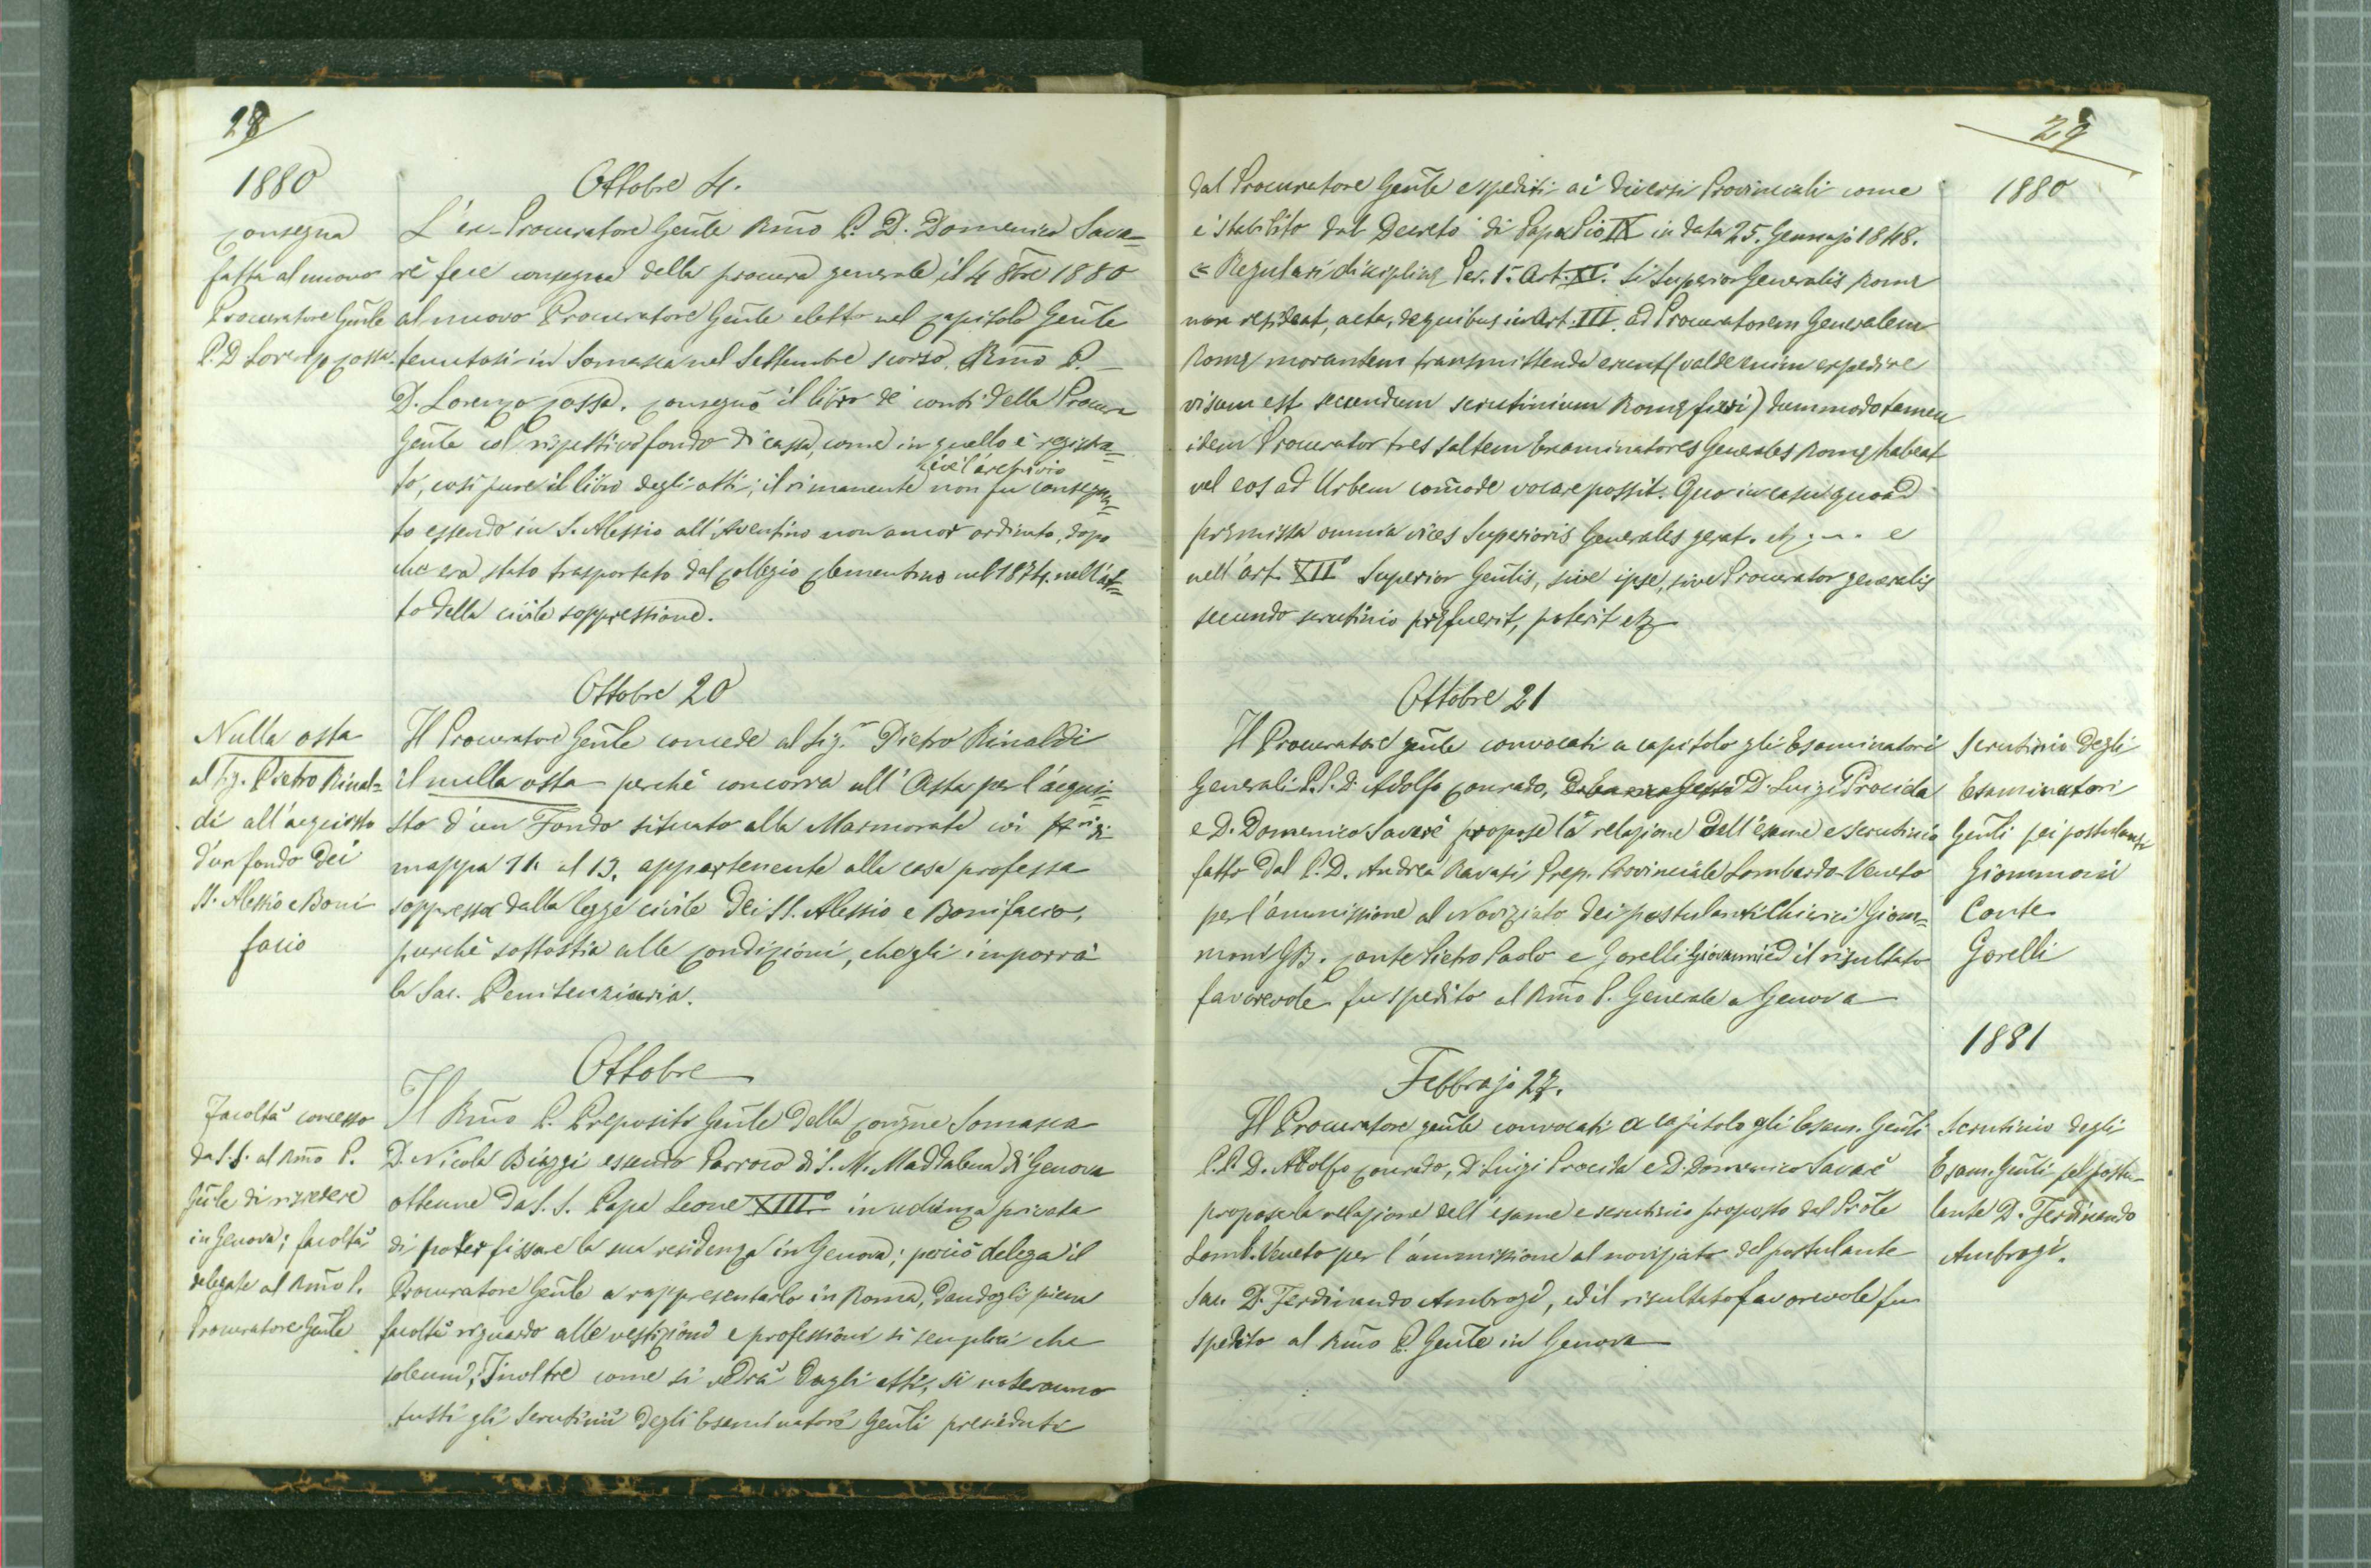 28
1880
Ottobre 4.
Consegna
fatta al nuovo
Procuratore Gñle
P. D Lorenzo Cossa
L'ex-Procuratore Geñle Rmo P. D. Domenico Sava=
rè fece consegna della procura generale il 4 8bre 1880
al nuovo Procuratore Geñle eletto nel Capitolo Geñle
tenutosi in Somasca nel Settembre scorso, Rmo P.
D. Lorenzo Cossa. Consegnò il libro de' conti della Procura
Geñle col rispettivo fondo di cassa, come in quello è registra=
cioè l'archivio
to, così pure il libro degli atti; il rimanente non fu consegna=
to essendo in S. Alessio all'Aventino non ancor ordinato, dopo
che era stato trasportato dal Collegio Clementino nel 1874. nell'at=
to della civile soppressione.
Ottobre 20
Nulla osta
al Sig. Pietro Rinal=
di all'acquisto
d'un fondo dei
SS. Alessio e Boni
facio
Il Procuratore Geñle concede al Sig.r Pietro Rinaldi
il nulla osta perchè concorra all'Asta per l'acqui=
sto d'un Fondo situato alla Marmorata coi di
mappa 11. al 13. appartenente alla casa professa
soppressa dalla legge civile dei SS. Alessio e Bonifacio,
purchè sottostia alle Condizioni, che gli imporrà
la Sac. Penitenziaria.
Ottobre
Facoltà concessa
da S.S. al Rmo P.
Gñle di risiedere
in Genova; facoltà
delegate al Rmo P.
Procuratore Geñle
Il Rmo P. Preposito Geñle della Congne Somasca
D. Nicola Biaggi essendo Parroco di S. M. Maddalena di Genova
ottenne da S. S. Papa Leone XIII° in udienza privata
di poter fissare la sua residenza in Genova; perciò delega il
Procuratore Geñle a rappresentarlo in Roma, dandogli piena
facoltà riguardo alle vestizioni e professioni sì semplici che
solenni; Inoltre come si vedrà dagli atti, si noteranno
tutti gli Scrutinii degli Esaminatori Geñli presieduti
29
1880
dal Procuratore Geñle e spediti ai diversi Provinciali come
è stabilito dal Decreto di Papa Pio IX in data 25. Gennajo 1848.
Regulari disciplinę Art. XI. Si Superior Generalis Romę
non resideat, acta, de quibus in Art. III. ad Procuratorem Generalem
Romę morantem transmittenda erunt (valde enim expedire
visum est secundum scrutinium Romę fieri) dummodo tamen
idem Procurator tres saltem Examinatores Generales Romę habeat
vel eos ad Urbem com̃ode vocare possit. Quo in casu quoad
pręmissa omnia vices Superioris Generales gerat. etz . . . e
nell'art. XII° Superior Geñlis, sive ipse, sive Procurator generalis
secundo scrutinio pręfuerit, poterit etz
Ottobre 21
Il Procuratore geñle convocati a capitolo gli Esaminatori
Generali P.P. D. Adolfo Conrado, D. Luigi Procida
e D. Domenico Savarè propose la relazione dell'esame e scrutinio
fatto dal P. D. Andrea Ravasi, Prep. Provinciale Lombardo-Veneto
per l'ammissione al Noviziato dei postulanti Chierici Giom=
moni GB. Conte Pietro Paolo e Gorelli Giovanni ed il risultato
favorevole fu spedito al Rmo P. Generale a Genova
Scrutinio degli
Esaminatori
Geñli pei postulanti
Giommoni
Conte
Gorelli
1881
Febbrajo 27.
Il Procuratore geñle convocati a capitolo gli Esam. Geñli
P.P. D. Adolfo Conrado, D. Luigi Procida e D. Domenico Savarè
propose la relazione dell'esame e scrutinio proposto dal Prõle
Lomb. Veneto per l'ammissione al noviziato del postulante
Sac. D. Ferdinando Ambrogi, ed il risultato favorevole fu
spedito al Rmo P. Geñle in Genova
Scrutinio degli
Esam. Geñli pel postu-
lante D. Ferdinando
Ambrogi.